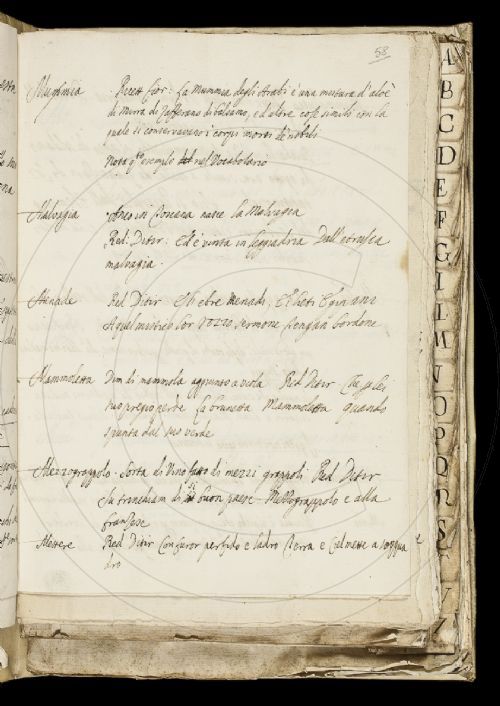 58
Mughmia Ricett. fior: La Mummia degli Arabi è una mistura d'aloè
di Mirra di Zafferano di balsamo, ed altre cose simili con la
quale si conservavano i corpi morti de nobili
Nota qto esempio nel Vocabolario
Malvagia Anco in Toscana nasce la Malvagia
Red: Ditir. Ed è venta in leggiadria Dall'etrusca
malvagia.
Menade Red Ditir Ebre Menadi, E lieti Egipani
A quel mistico lor rozzo sermone Tengan bordone
Mammoletta Dim di mammola aggiunto a viola Red Ditir Che per lei
suo pregio perde La brunetta Mammoletta quando
spunta dal suo verde
Mezzograppolo. Sorta di Vino fatto di mezzi grappoli Red Ditir
Su trinchiam di sì buon paese Mezzograppolo e alla
franzese
Mettere Red Ditir Con furor perfido e ladro Terra e Ciel mette a soqqua
dro
A
B
C
D
E
F
G
I
L
M
N
O
P
Q
R
S
V
Z